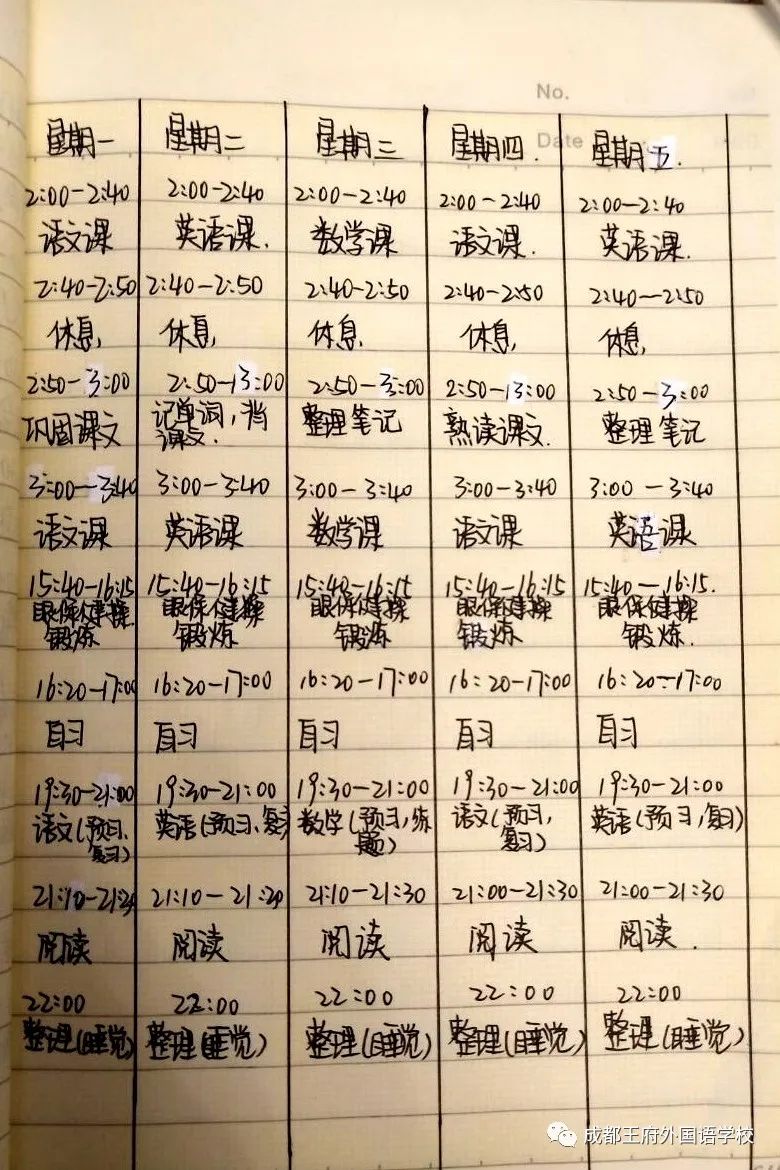 No.
Date
星期一 星期二 星期三 星期四. 星期五.
2:00-2:40 2:00-2:40 2:00-2:40 2:00-2:40 2:00-2:40
语文课 英语课. 数学课 语文课. 英语课.
2:40-2:50 2:40-2:50 2:40-2:50 2:40-2:50 2:40-2:50
休息, 休息, 休息, 休息, 休息,
2:50-3:00 2:50-13:00 2:50-3:00 2:50-13:00 2:50-3:00
巩固课文 记单词,背 整理笔记 熟读课文. 整理笔记
课文.
3:00-3:40 3:00-3:40 3:00-3:40 3:00-3:40 3:00-3:40
语文课 英语课 数学课 语文课 英语课
15:40-16:15 15:40-16:15 15:40-16:15 15:40-16:15 15:40-16:15.
眼保健操. 眼保健操 眼保健操 眼保健操 眼保健操
锻炼 锻炼 锻炼 锻炼 锻炼.
16:20-17:00 16:20-17:00 16:20-17:00 16:20-17:00 16:20-17:00
自习 自习 自习 自习 自习
19:30-21:00 19:30-21:00 19:30-21:00 19:30-21:00 19:30-21:00
语文(预习、 英语(预习、复习 数学(预习,练 语文(预习, 英语(预习,复习)
复习) 题) 复习)
21:10-21:30 21:10-21:30 21:10-21:30 21:00-21:30 21:00-21:30
阅读 阅读 阅读 阅读 阅读.
22:00 22:00 22:00 22:00 22:00
整理(睡觉) 整理(睡觉) 整理(睡觉) 整理(睡觉) 整理(睡觉)
成都王府外国语学校